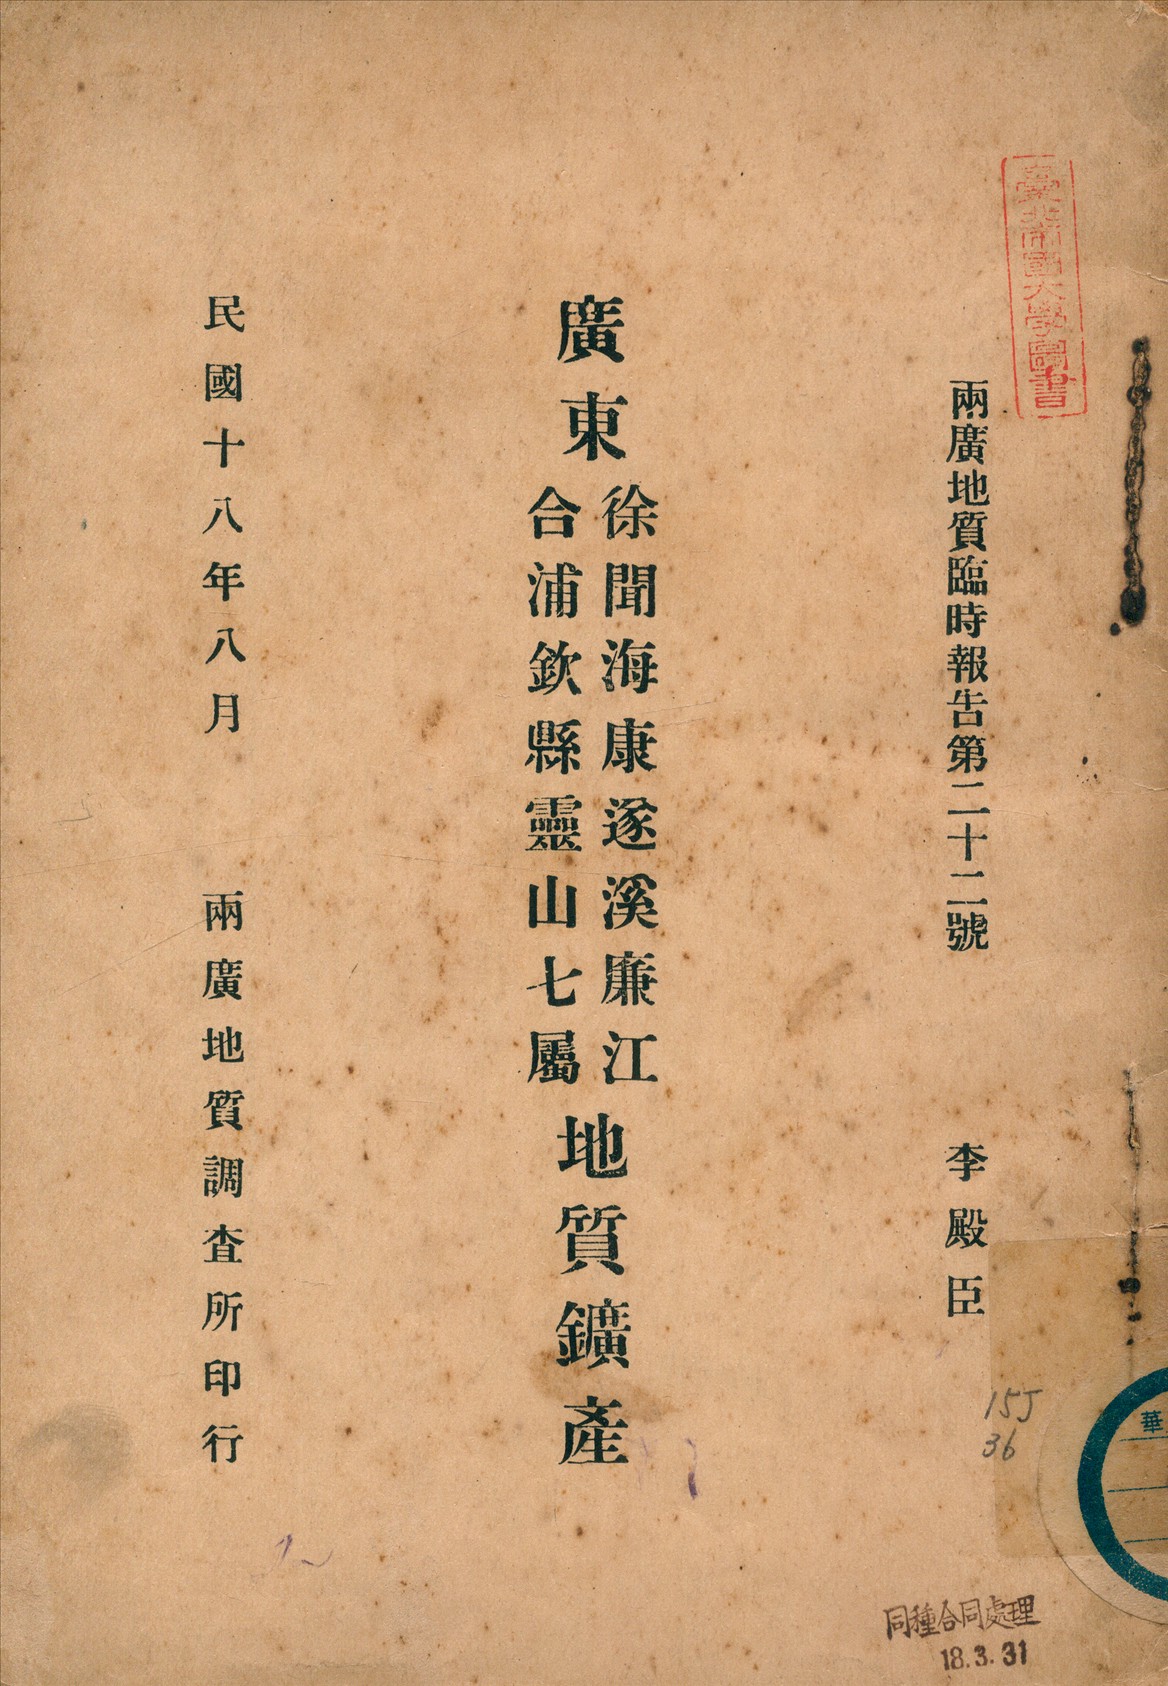 臺北帝國大學圖書
兩廣地質臨時報告第二十二號　李殿臣
廣東
徐聞海康遂溪廉江
合浦欽縣靈山七屬
地質鑛產
民國十八年八月　兩廣地質調查所印行
15J
36
華
同種合同處理
18.3.31